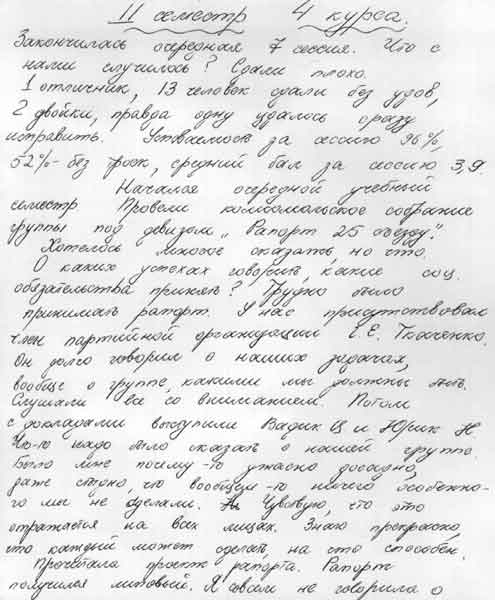 II семестр 4 курса.
Закончилась очередная 7 сессия. Что с
нами случилось? Сдали плохо.
1 отличник, 13 человек сдали без удов,
2 двойки, правда одну удалось сразу
исправить. Успеваемость за сессию 96%,
52% - без троек, средний бал за сессию 3,9.
Начался очередной учебный
семестр. Провели комсомольское собрание
группы под девизом „Рапорт 25 съезду".
Хотелось многое сказать, но что.
О каких успехах говорить, какие соц.
обязательства принять? Трудно было
принимать рапорт. У нас присутствовал
член партийной организации Е. Ткаченко.
Он долго говорил о наших задачах,
вообще о группе, какими мы должны быть.
Слушали все со вниманием. Потом
с докладами выступили Вадик Ц и Юрик Н
Что-то надо было сказать о нашей группе.
Было мне почему-то ужасно досадно,
даже стыдно, что вообщем-то ничего особенно-
го мы не сделали. Чувствую, что это
отражается на всех лицах. Знаю прекрасно,
что каждый может сделать, на что способен.
Прочитала проэкт рапорта. Рапорт
получился липовый. Я совсем не говорила о